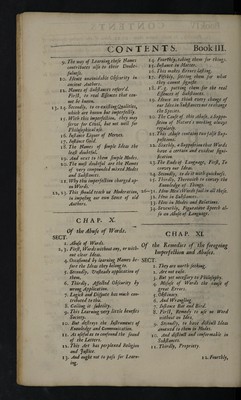 CONTENTS. Book III.
9. The way of Learning these Names contributes also to their Doubtfulness.
10. Hence unavoidable Obscurity in ancient Authors.
11. Names of Substances referr'd.
First, to real Essences that cannot be known.
13, 14. Secondly, to co-existing Qualities, which are known but imperfectly.
15. With this imperfection, they may serve for Civil, but not well for Philosophical use.
16. Instance Liquor of Nerves.
17. Instance Gold.
18. The Names of simple Ideas the least doubtful.
19. And next to them simple Modes.
20. The most doubtful are the Names of very compounded mixed Modes and Substances.
21. Why this imperfection charged upon Words.
22, 23. This should teach us Moderation, in imposing our own Sense of old Authors.
CHAP. X.
Of the Abuse of Words.
SECT.
1. Abuse of Words.
2, 3. First, Words without any, or without clear Ideas.
4. Occasioned by learning Names before the Ideas they belong to.
5. Secondly, Unsteady application of them.
6. Thirdly, Affected Obscurity by wrong Application.
7. Logick and Dispute has much contributed to this.
8. Calling it subtilty.
9. This Learning very little benefits Society.
10. But destroys the Instruments of Knowledge and Communication.
11. As useful as to confound the sound of the Letters.
12. This Art has perplexed Religion and Justice.
13. And ought not to pass for Learning.
14. Fourthly, taking them for things.
15. Instance in Matter.
16. This makes Errors lasting.
17. Fifthly, setting them for what they cannot signifie.
18. V. g. putting them for the real Essences of Substances.
19. Hence we think every change of our Idea in Substances not to change the Species.
20. The Cause of this abuse, a supposition of Nature's working always regularly.
21. This abuse contains two false Suppositions.
22. Sixthly, a Supposition that Words have a certain and evident signification.
23. The Ends of Language, First, To convey our Ideas.
24. Secondly, to do it with quickness.
25. Thirdly, Therewith to convey the Knowledge of Things.
26—31. How Men's Words fail in all these.
32. How in Substances.
33. How in Modes and Relations.
34. Seventhly, Figurative Speech also an abuse of Language.
CHAP. XI.
Of the Remedies of the foregoing Imperfections and Abuses.
SECT.
1. They are worth seeking.
2. Are not easie.
3. But yet necessary to Philosophy.
4. Misuse of Words the cause of great Errors.
5. Obstinacy.
6. And Wrangling.
7. Instance Bat and Bird.
8. First, Remedy to use no Word without an Idea.
9. Secondly, to have distinct Ideas annexed to them in Modes.
10. And distinct and conformable in Substances.
11. Thirdly, Propriety.
12. Fourthly,